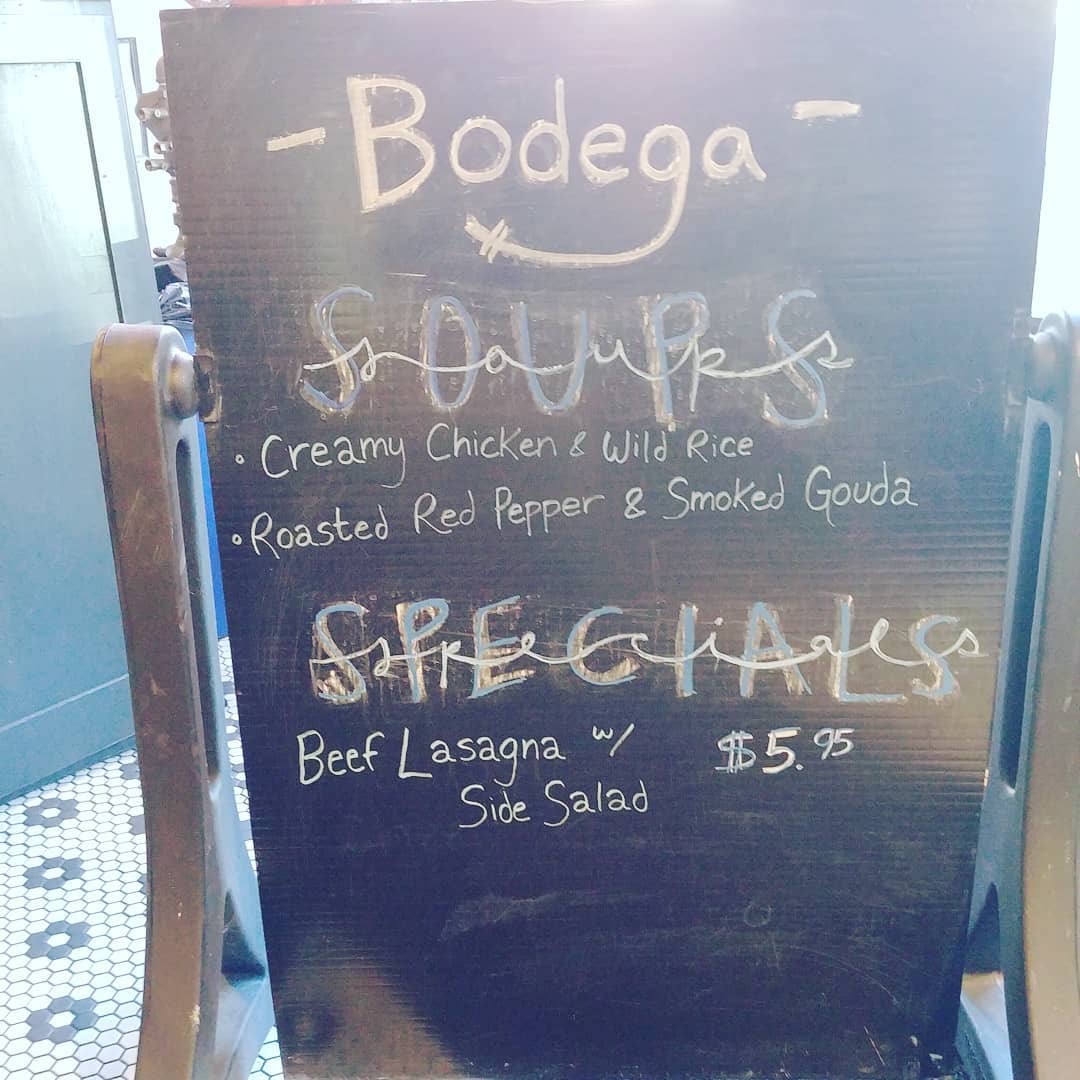 - Bodega -
SOUPS
• Creamy Chicken & Wild Rice
• Roasted Red Pepper & Smoked Gouda
SPECIALS
Beef Lasagna w/ $5.95
Side Salad